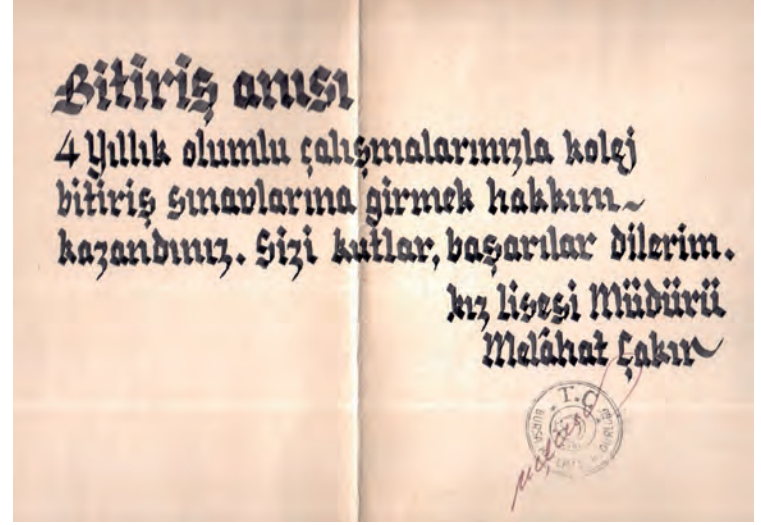 Bitiriş anısı
4 Yıllık olumlu çalışmalarınızla kolej
bitiriş sınavlarına girmek hakkını
kazandınız. Sizi kutlar, başarılar dilerim.
kız lisesi Müdürü
Melâhat Çakır
T.C.
BURSA